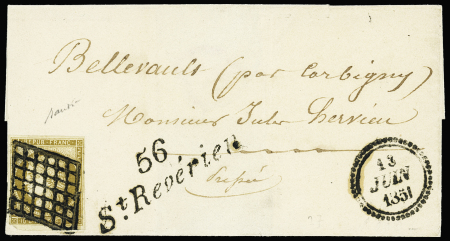 Bellevault (par Corbigny)
Monsieur Jules Hervieu
REPUB FRANC
56
St Revérien
13
JUIN
1851